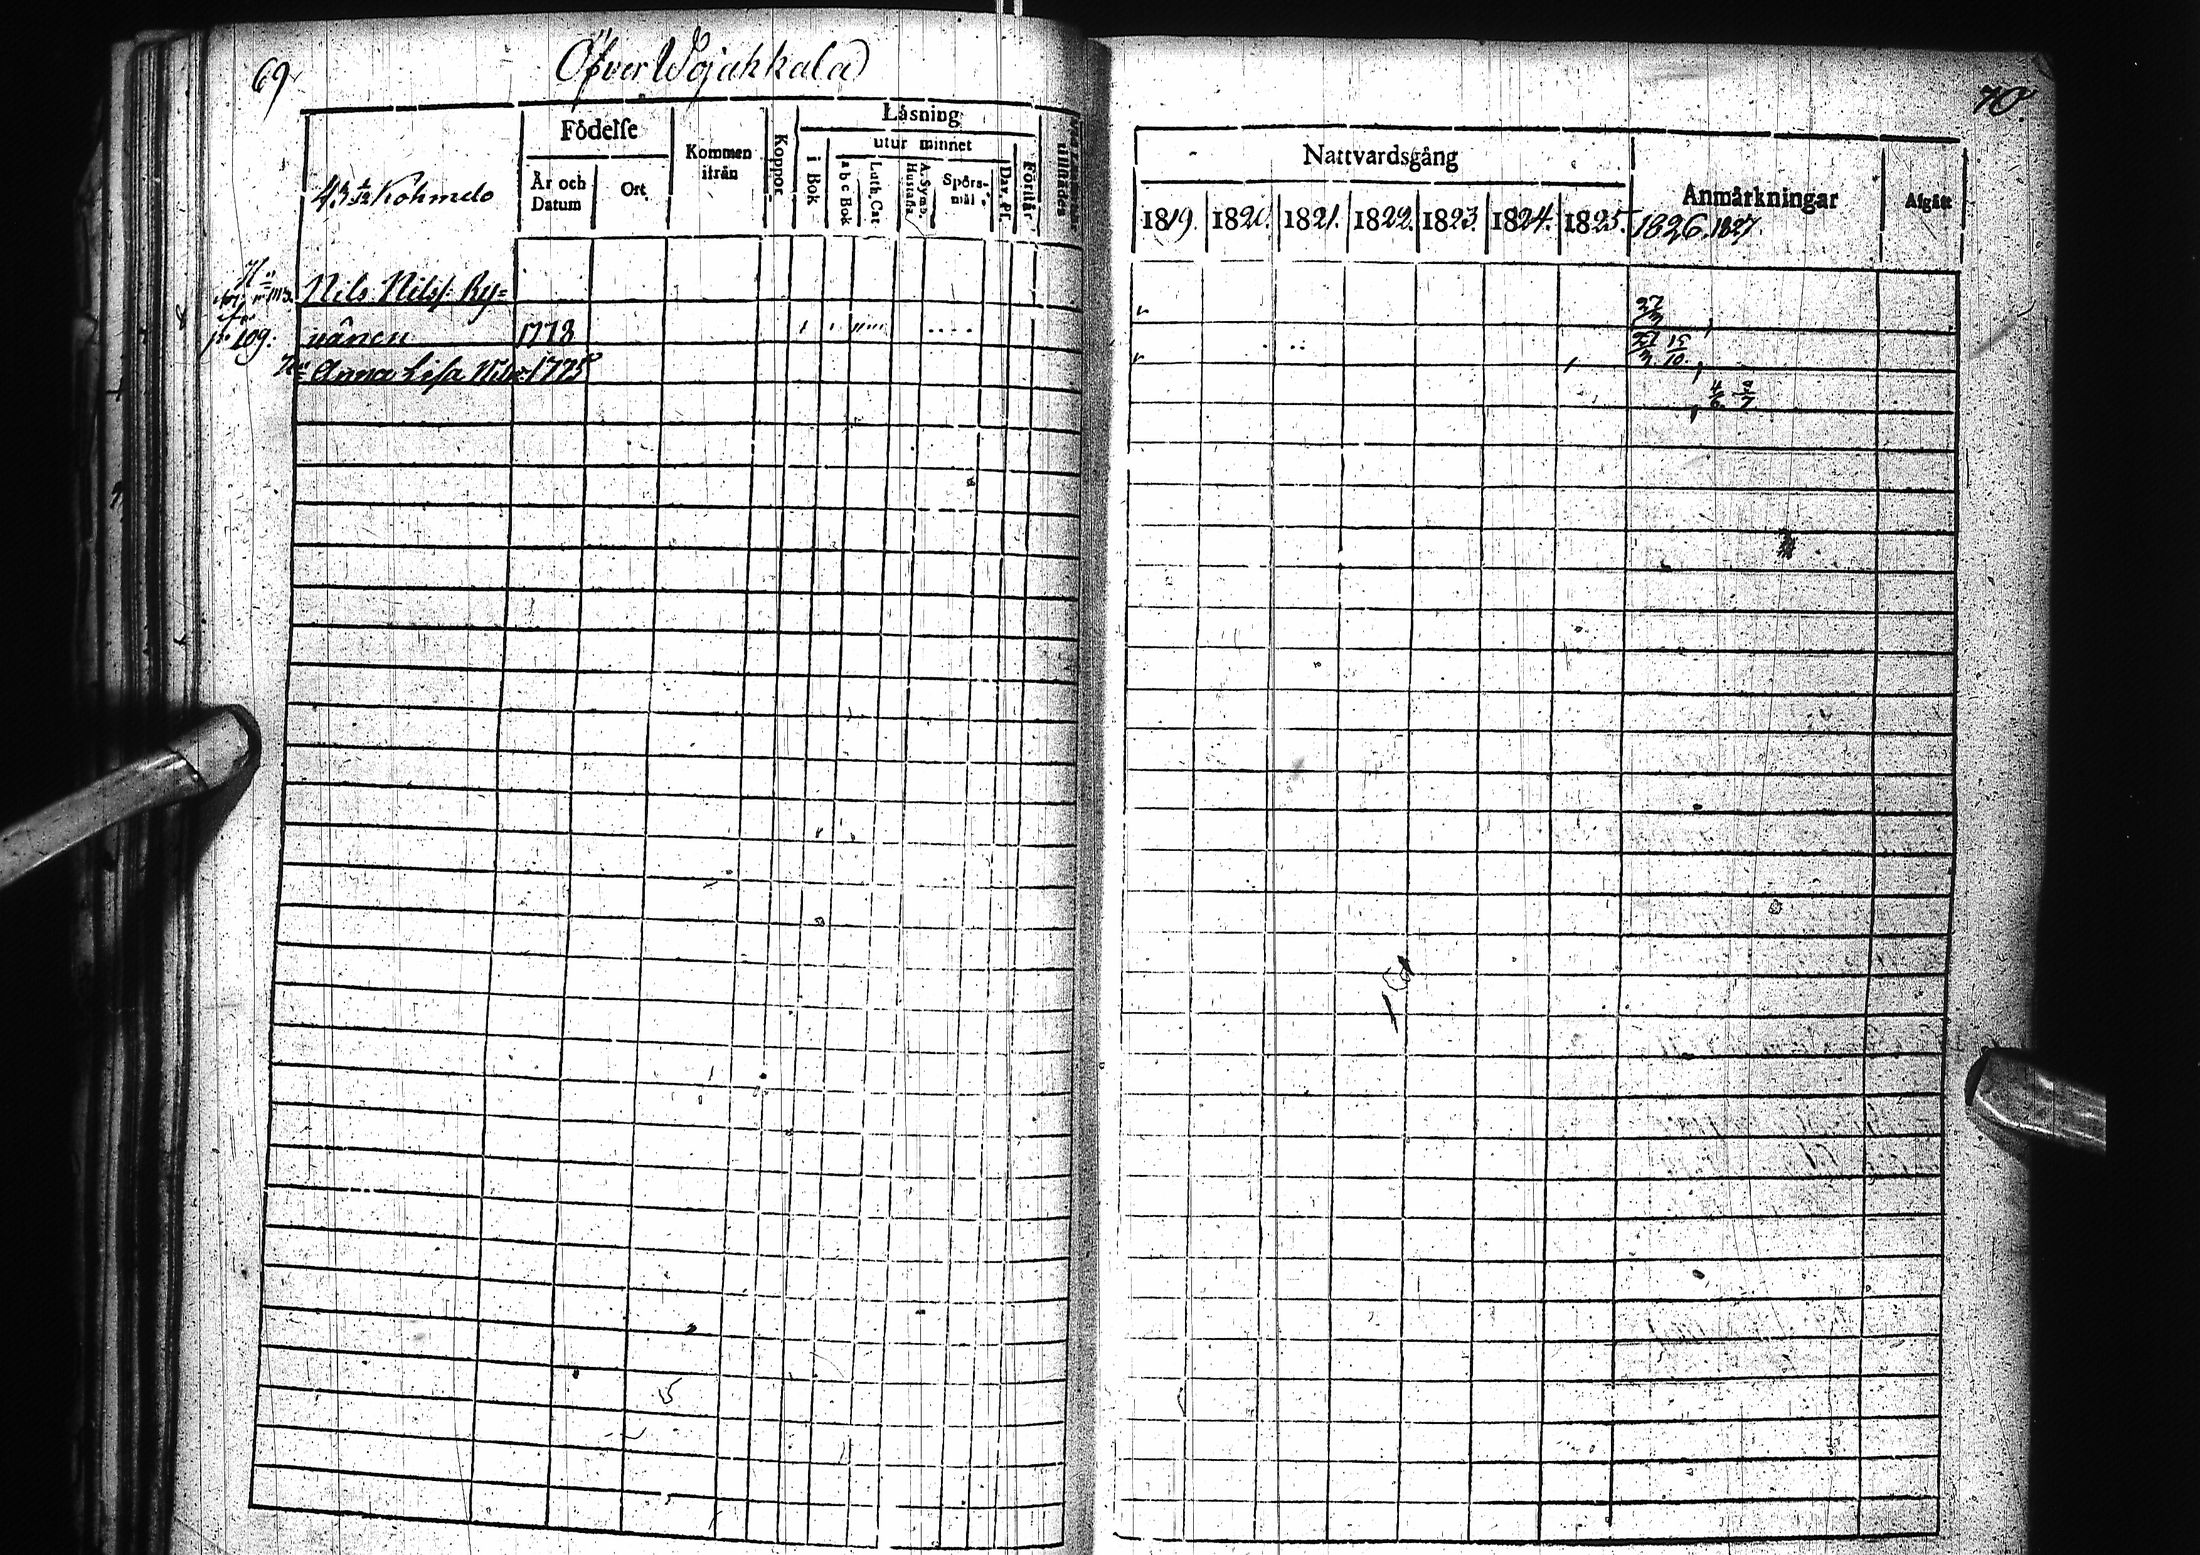 69
Öfver Wojakkala
Födelse
Kommen
ifrån
Koppor.
Läsning
utur minnet
i Bok
a b c Bok
Luth. Cat
A. Symb.
Hustafla.
Spörs-
mål
Dav. Ps.
Förstår
År och
Datum
Ort.
Kohmelo
Nils Nilss. Ry=
vänen 1778
p. 109.
Anna Lisa 1775
70.
Nattvardsgång
Anmärkningar
Afgått
1819. 1820. 1821. 1822. 1823. 1824. 1825. 1826. 1827.
27/3
27/3 15/10
4/6